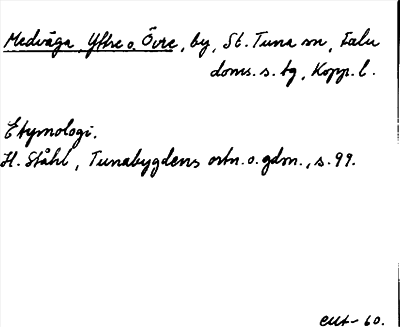 Medväga, Yttre o. Övre, by, St. Tuna sn, Falu
doms. s. tg, Kopp. l.
Etymologi.
H. Ståhl, Tunabygdens ortn. o. gdn., s. 99.
60.